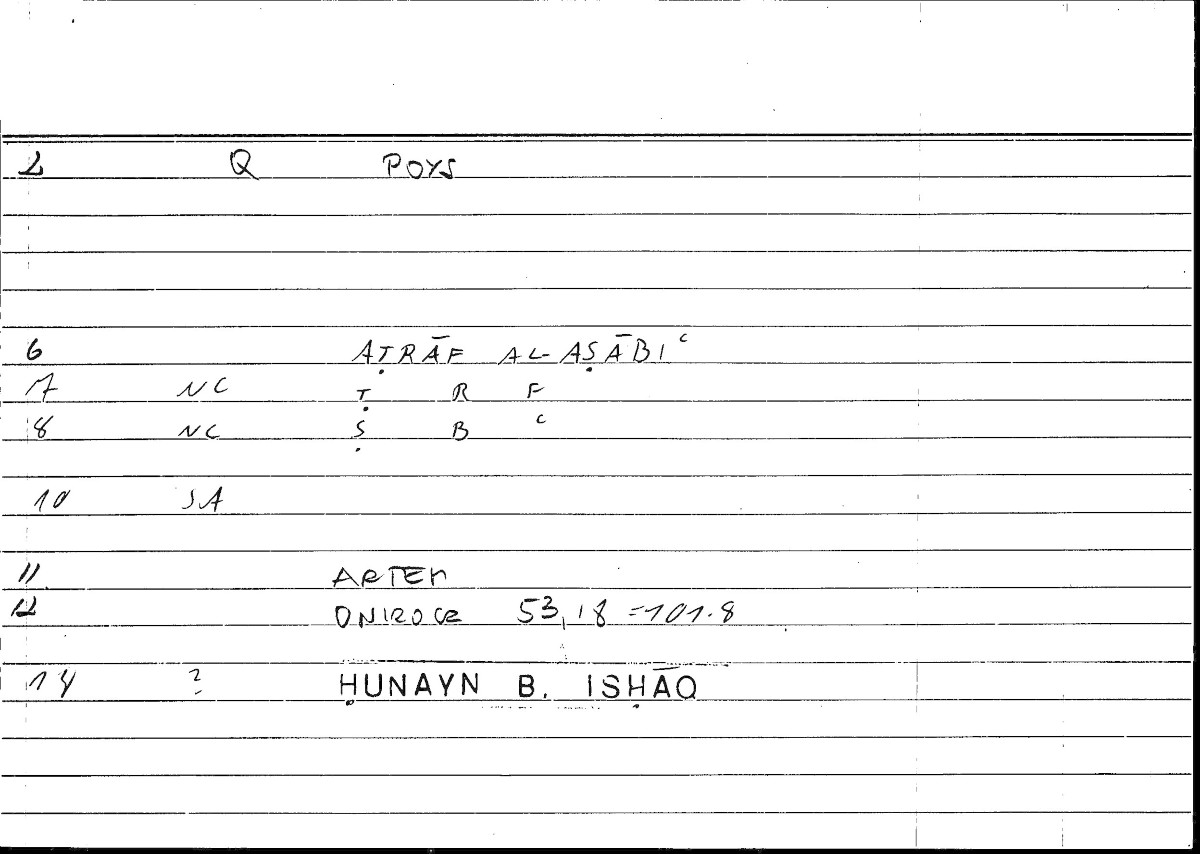 2 Q ΡΟΥΣ
6 AṬRĀF AL-AṢĀBIᶜ
7 NC Ṭ R F
8 NC Ṣ B ᶜ
10 SA
11 ARTEM
12 ONIROCR 53,18 =101.8
14 ? ḤUNAYN B. ISḤĀQ